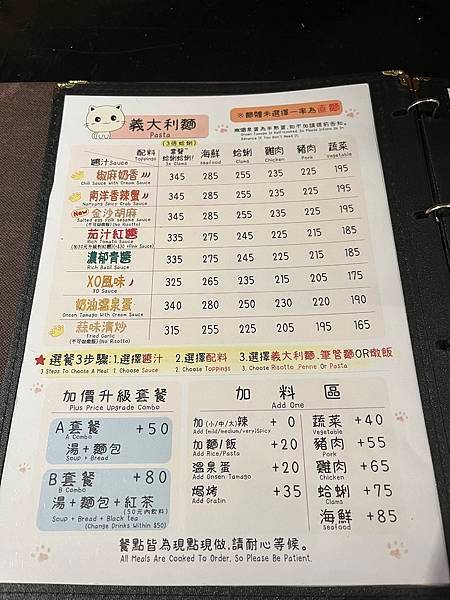 義大利麵
Pasta
※麵體未選擇一率為直麵
※溫泉蛋為半熟蛋,如不加請提前告知。
Onsen Tamago Is Half-cooked. So Please Inform Us In
Advance If You Don't Need It.
(3倍蛤蜊)
醬汁Sauce 配料 Toppings 套餐 蛤蜊蛤蜊! 3x Clams 海鮮 seafood 蛤蜊 Clams 雞肉 Chicken 豬肉 Pork 蔬菜 Vegetable
椒麻奶香 345 285 255 235 225 195
Chili Sauce With Cream Sauce
南洋香辣蟹 345 285 255 235 225 195
Nanyang Spicy Crab Sauce
New 金沙胡麻 345 285 255 235 225 195
Salted egg yolk sesame sauce
(不可做燉飯)(No Risotto)
茄汁紅醬 335 275 245 225 215 185
Rich Tomato Sauce
(加30元升級粉紅醬)(+$30 →Pink Sauce)
濃郁青醬 335 275 245 225 215 185
Rich Basil Sauce
XO風味 325 265 235 215 205 175
XO Sauce
奶油溫泉蛋 340 280 250 230 220 190
Onsen Tamago With Cream Sauce
蒜味清炒 315 255 225 205 195 165
Fried Garlic
(不可做燉飯)(No Risotto)
★選餐3步驟:1.選擇醬汁 2.選擇配料 3.選擇義大利麵、筆管麵OR燉飯
3 Steps To Choose A Meal 1. Choose Sauce 2. Choose Toppings 3. Choose Risotto ,Penne Or Pasta
加價升級套餐
Plus Price Upgrade Combo
A套餐 +50
A Combo
湯+麵包
Soup + Bread
B套餐 +80
B Combo
湯+麵包+紅茶
(50元內飲料)
Soup + Bread + Black Tea
(Change Drinks Within $50)
加料區
Add One
加(小/中/大)辣 + 0
Add (mild/medium/very)Spicy
加麵/飯 +20
Add Rice/Pasta
溫泉蛋 +20
Add Onsen Tamago
焗烤 +35
Add Gratin
蔬菜 +40
Vegetable
豬肉 +55
Pork
雞肉 +65
Chicken
蛤蜊 +75
Clams
海鮮 +85
seafood
餐點皆為現點現做,請耐心等候。
All Meals Are Cooked To Order, So Please Be Patient.